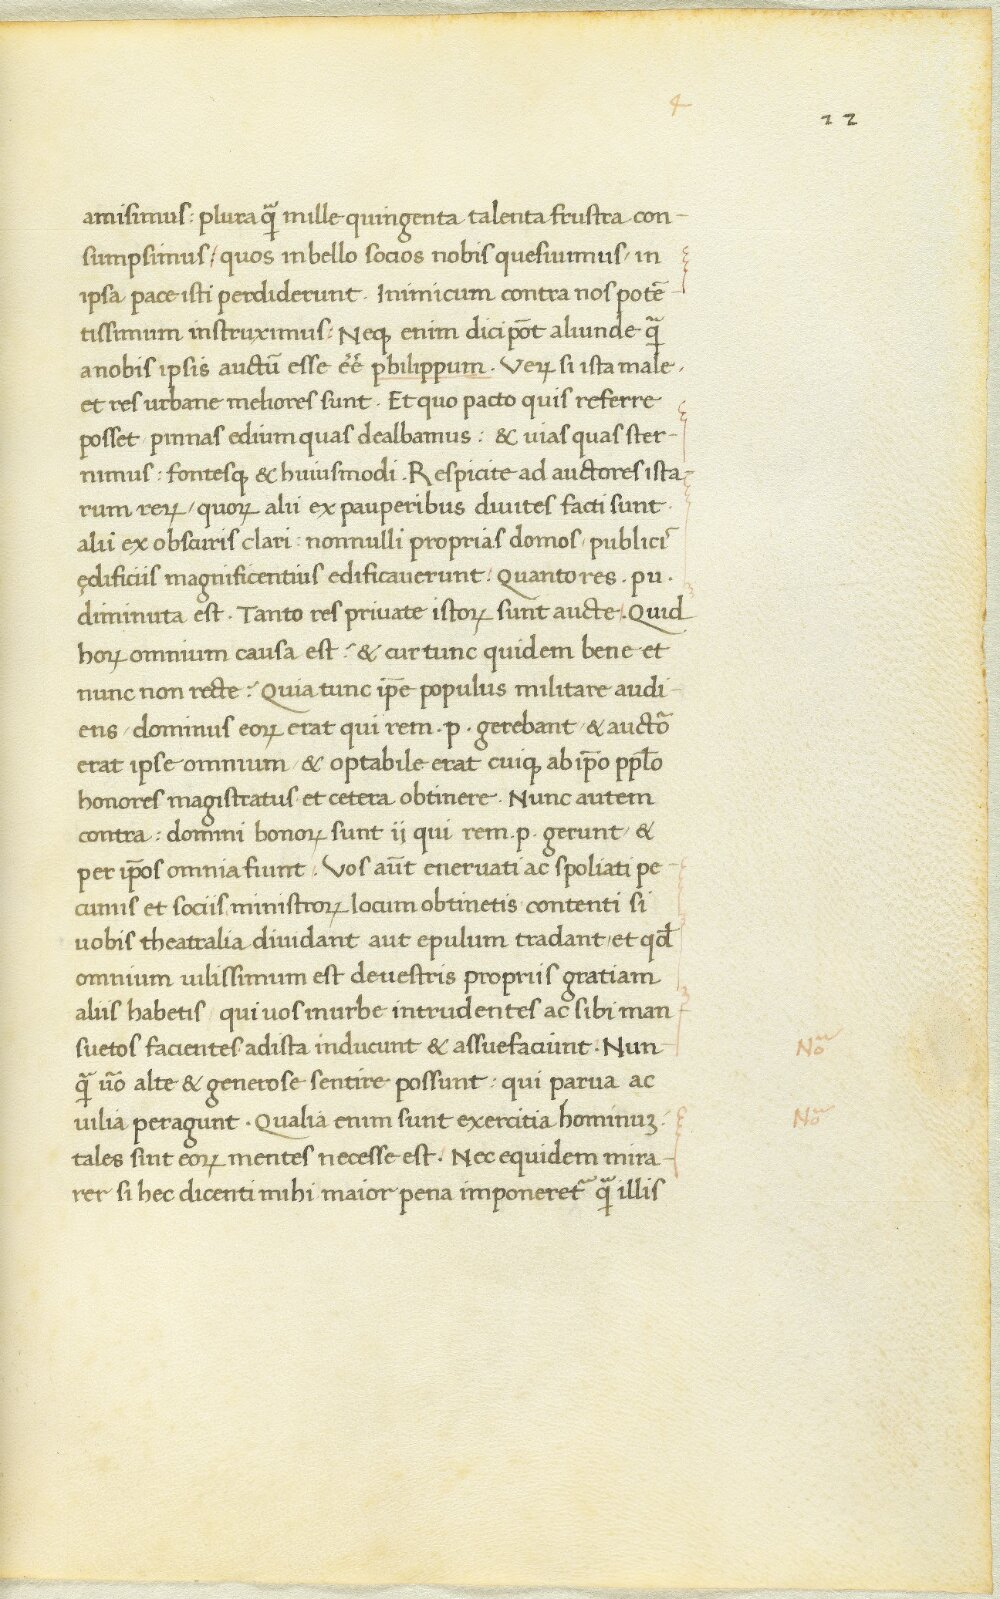 22
amisimus: plura qᷓ mille quingenta talenta frustra con-
sumpsimus/ quos in bello socios nobis quesiuimus/ in
ipsa pace isti perdiderunt. Inimicum contra nos potē
tissimum instruximus: Neqꝫ enim dici põt aliunde qᷓ
a nobis ipsis auctũ esse eẽ philippum. Veꝝ si ista male,
et res urbane meliores sunt. Et quo pacto quis referre
posset pinnas edium quas dealbamus: & uias quas ster-
nimus: fontesqꝫ & huiusmodi. Respicite ad auctores ista-
rum reꝝ/ quoꝝ alii ex pauperibus diuites facti sunt.
alii ex obscuris clari: nonnulli proprias domos/ publicis
ędificiis magnificentius edificauerunt: Quanto res. pu.
diminuta est. Tanto res priuate istoꝝ sunt aucte. Quid
hoꝝ omnium causa est? & cur tunc quidem bene et
nunc non recte? Quia tunc ip̄e populus militare audi-
ens/ dominus eoꝝ erat qui rem. p. gerebant/ & auctõ
erat ipse omnium/ & optabile erat cuiqꝫ ab ip̄o pp̄lo
honores magistratus et cetera obtinere. Nunc autem
contra: domini bonoꝝ sunt ij qui rem. p. gerunt/ &
per ip̄os omnia fiunt. Vos aũt eneruati ac spoliati pe-
cuniis et sociis ministroꝝ locum obtinetis contenti si
uobis theatralia diuidant aut epulum tradant/ et qđ
omnium uilissimum est de uestris propriis gratiam
aliis habetis/ qui uos in urbe intrudentes ac sibi man-
suetos facientes ad ista inducunt & assuefaciunt. Nun-
qᷓ ũo alte & generose sentire possunt: qui parua ac
uilia peragunt. Qualia enim sunt exercitia hominuꝫ:
tales sint eoꝝ mentes necesse est. Nec equidem mira-
rer si hec dicenti mihi maior pena imponeret᷑ qᷓ illis
Nõ
Nõ